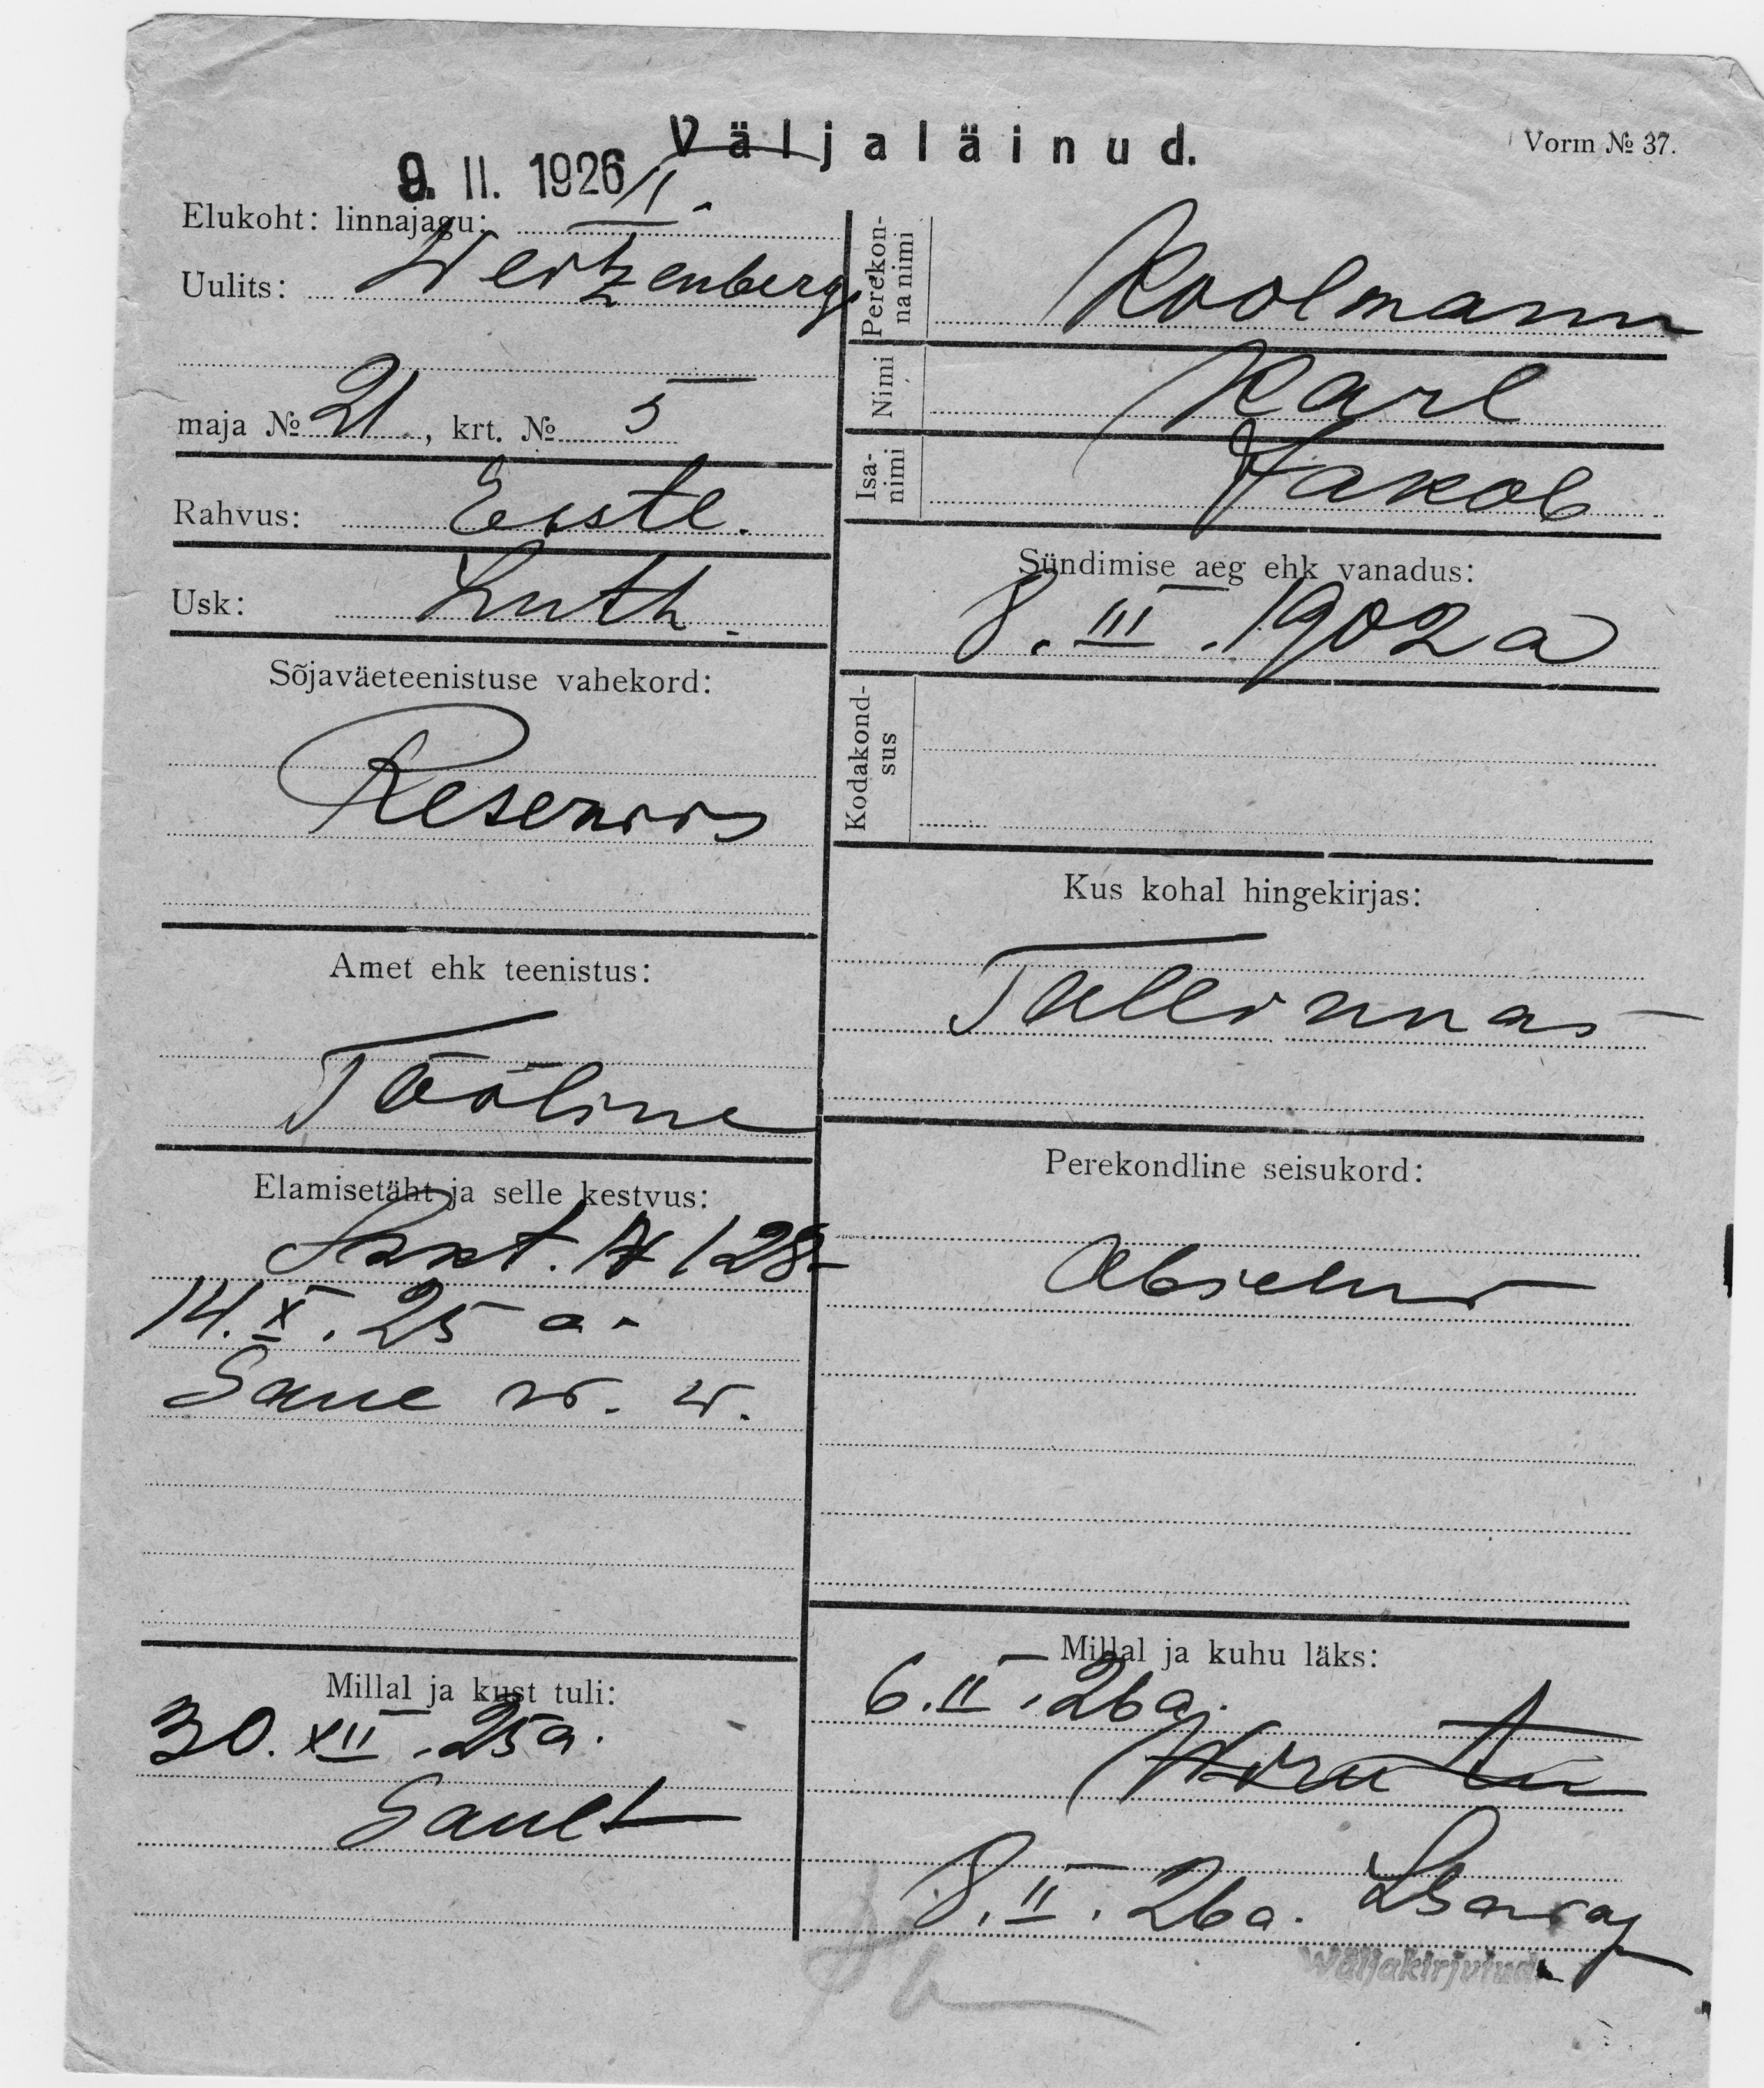 Väljaläinud.
Vorm № 37.
9. II. 1926
Elukoht: linnajagu: II.
Uulits: Weitzenbergi
maja № 21, krt. № 5
Rahvus: Eestl.
Usk: Luth.
Sõjaväeteenistuse vahekord:
Reservis
Amet ehk teenistus:
Tööline
Elamisetäht ja selle kestvus:
№ 128
14. X. 25 a.
Saue w. w.
Millal ja kust tuli:
30. XII. 25 a.
Sauelt
Perekonnanimi
Koolmann
Nimi
Karl
Isanimi
Jakob
Sündimise aeg ehk vanadus:
8. III. 1902 a
Kodakondsus
Kus kohal hingekirjas:
Tallinnas
Perekondline seisukord:
Abielus
Millal ja kuhu läks:
6. II. 26 a.
8. II. 26 a.
Wäljakirjutud